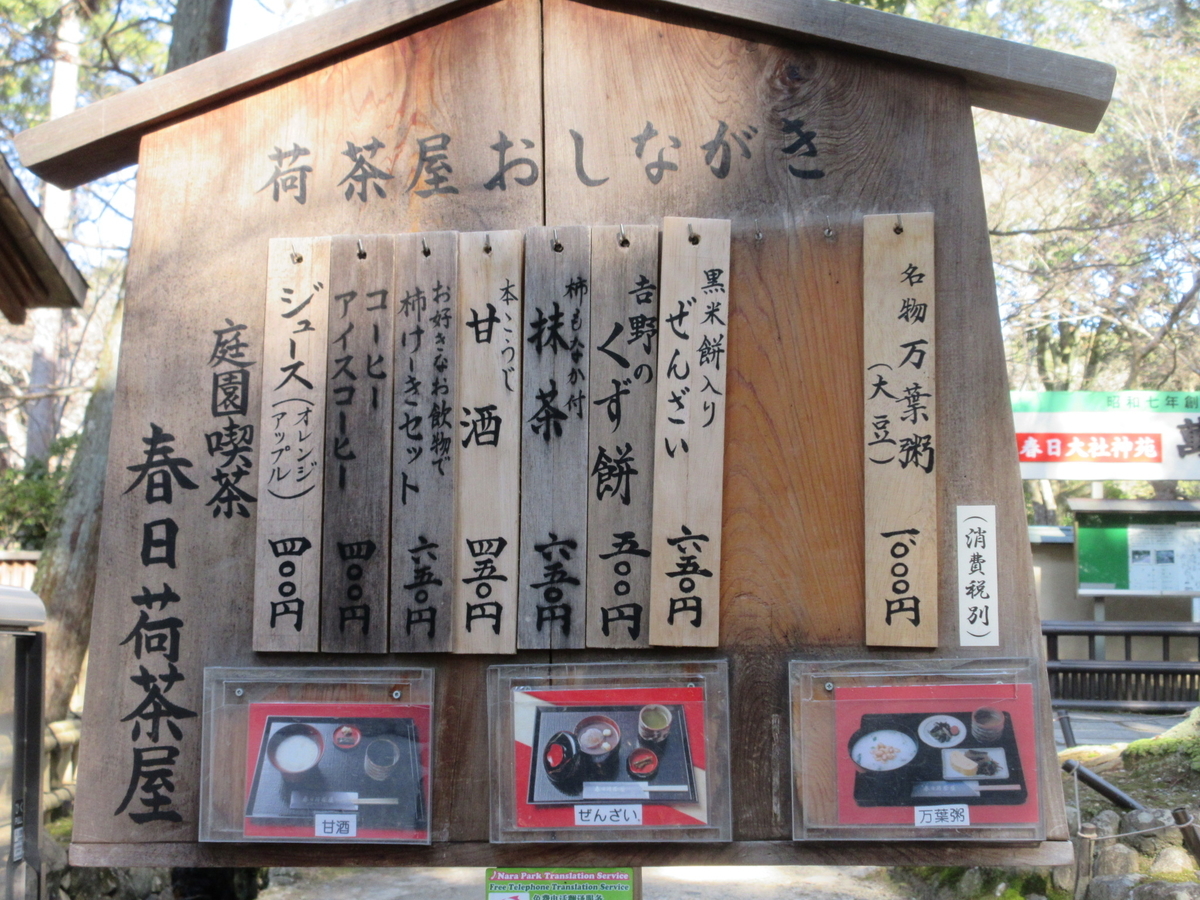 荷茶屋おしながき
名物万葉粥
(大豆)
一、〇〇〇円
(消費税別)
黒米餅入り
ぜんざい
六五〇円
吉野の
くず餅
五〇〇円
柿もなか付
抹茶
六五〇円
本こうじ
甘酒
四五〇円
お好きなお飲物で
柿けーきセット
六五〇円
コーヒー
アイスコーヒー
四〇〇円
ジュース(オレンジ
アップル)
四〇〇円
庭園喫茶
春日荷茶屋
甘酒
ぜんざい
万葉粥
昭和七年創
春日大社神苑
萬
Nara Park Translation Service
Free Telephone Translation Service